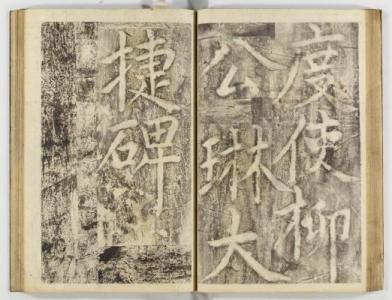 度使柳
公琳大
捷碑